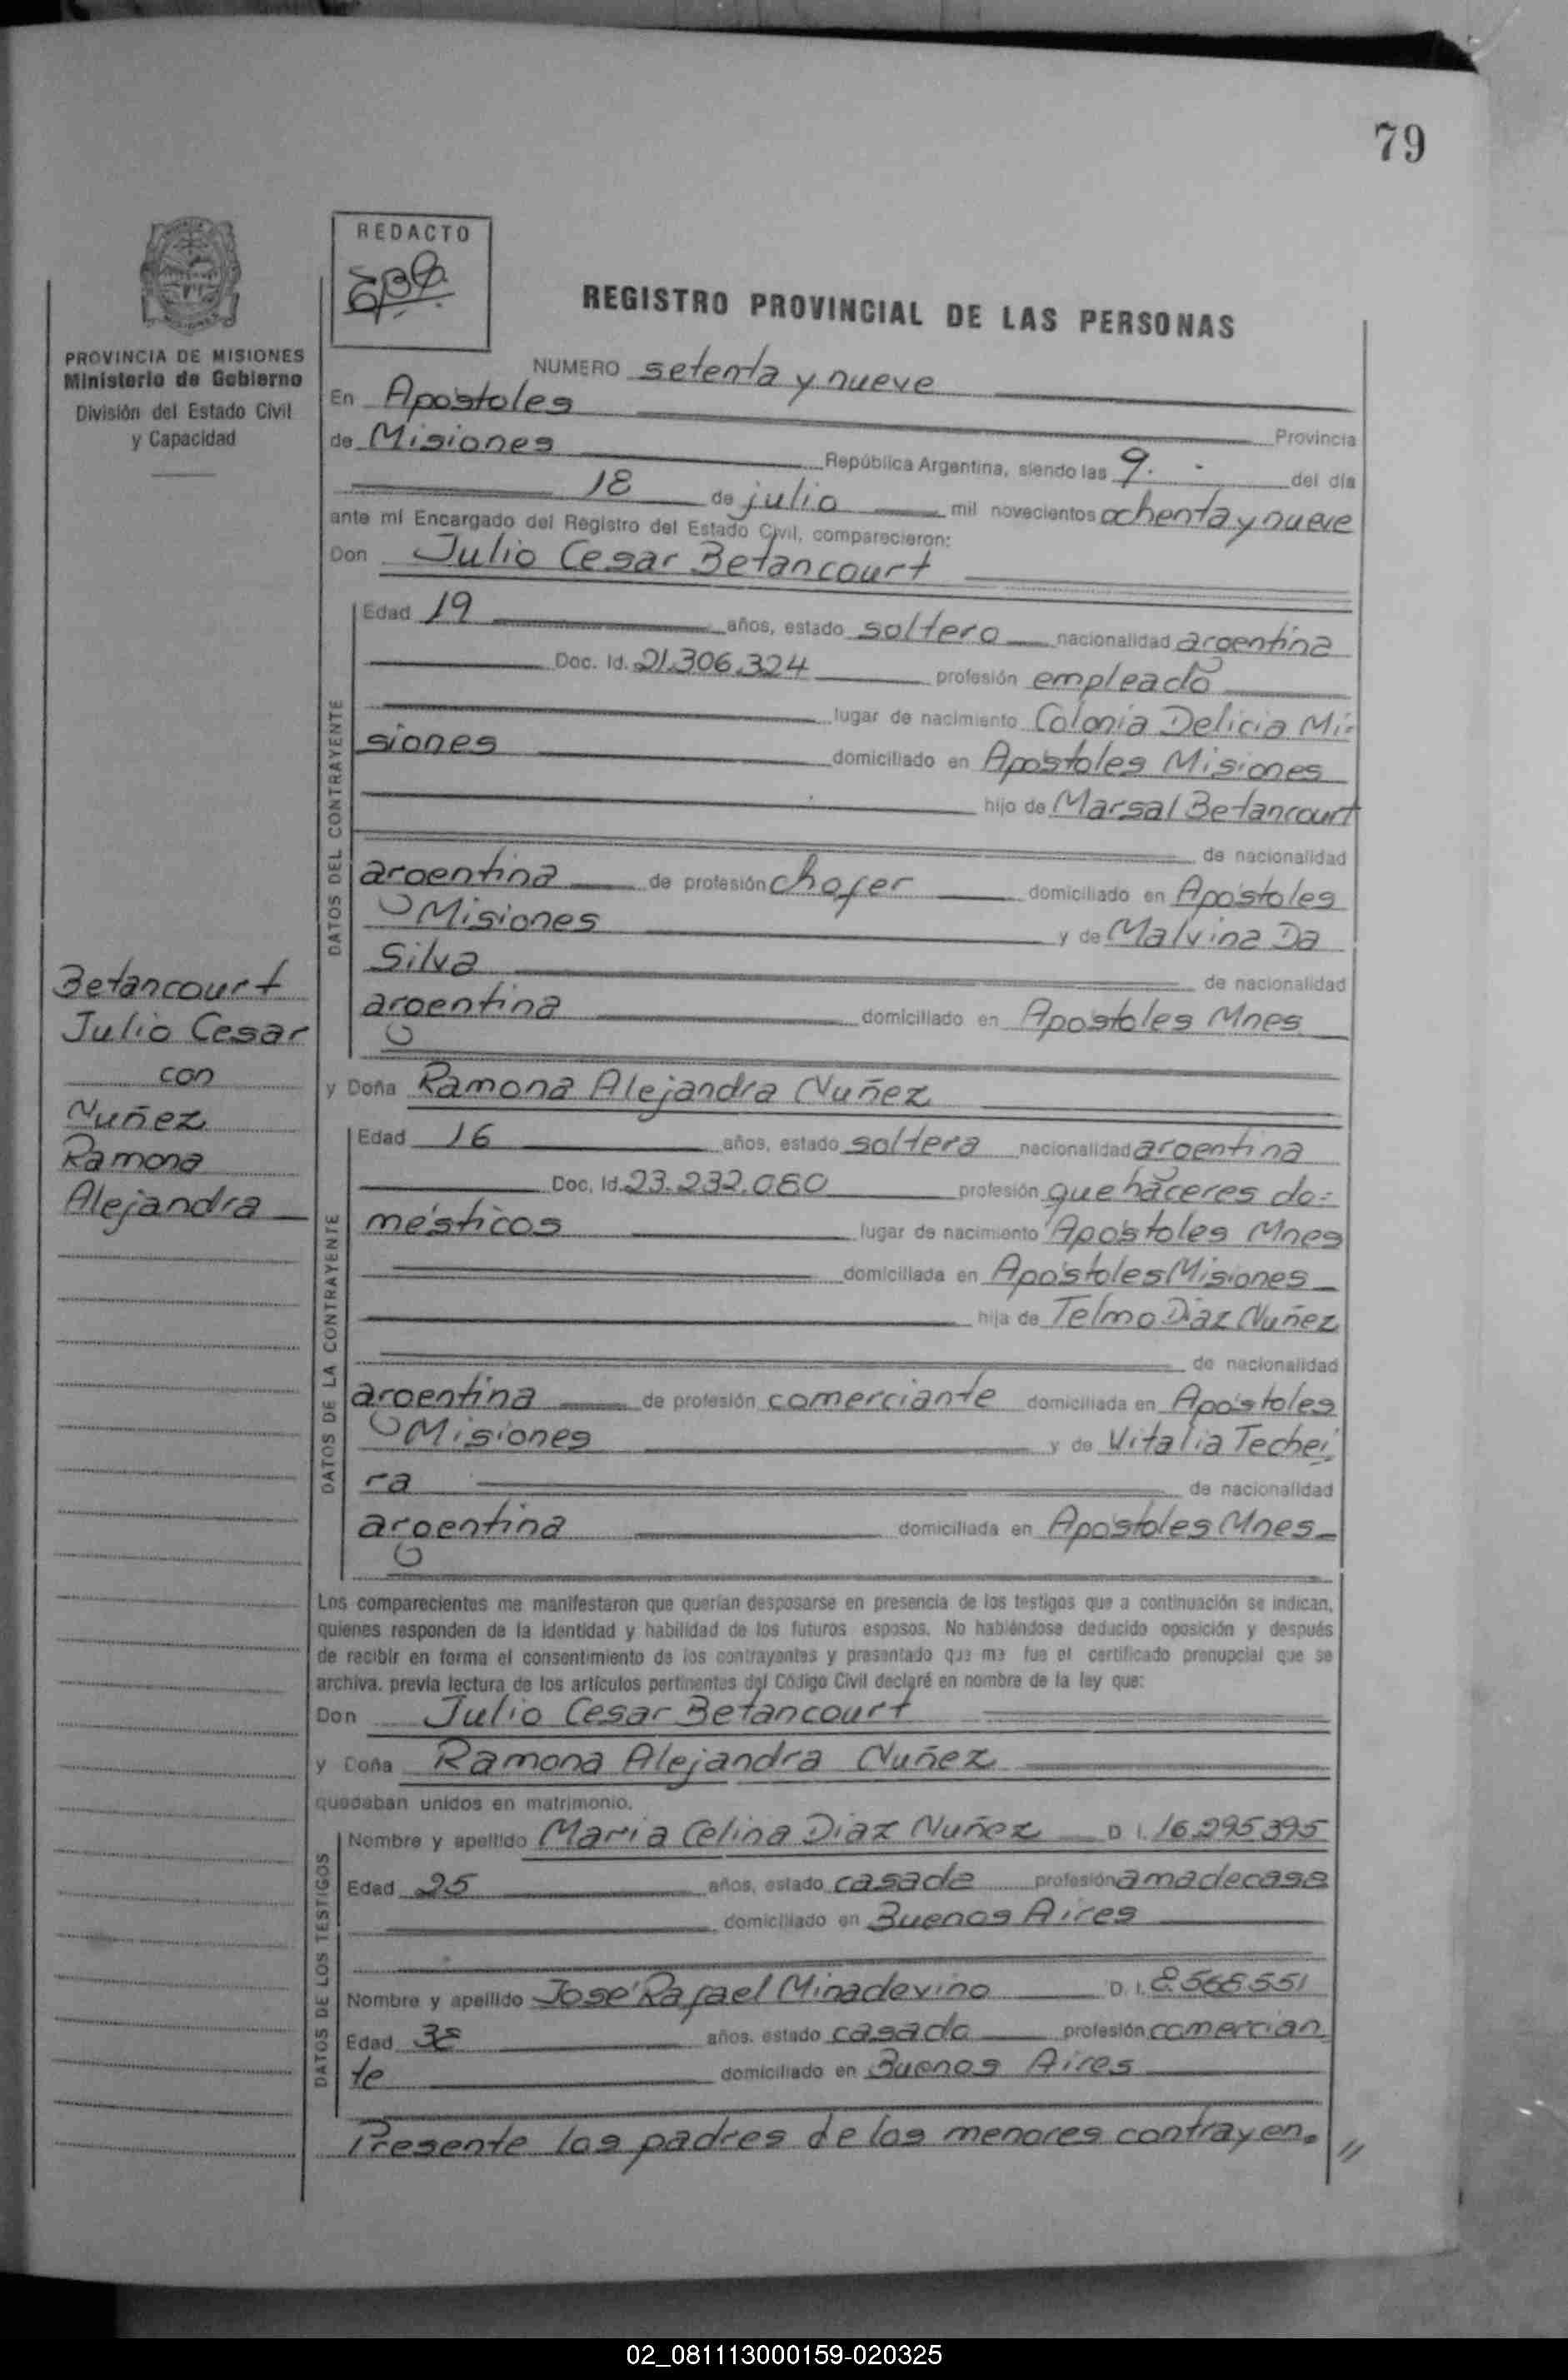 79
REDACTO
REGISTRO PROVINCIAL DE LAS PERSONAS
PROVINCIA DE MISIONES
Ministerio de Gobierno
División del Estado Civil
y Capacidad
NUMERO setenta y nueve
En Apóstoles Provincia
de Misiones República Argentina, siendo las 9. del día
18 de julio mil novecientos ochenta y nueve
ante mí Encargado del Registro del Estado Civil, comparecieron:
Don Julio Cesar Betancourt
DATOS DEL CONTRAYENTE
Edad 19 años, estado soltero nacionalidad argentina
Doc. Id. 21.306.324 profesión empleado
lugar de nacimiento Colonia Delicia Mi-
siones domiciliado en Apóstoles Misiones
hijo de Marsal Betancourt
de nacionalidad
argentina de profesión chofer domiciliado en Apóstoles
Misiones y de Malvina Da
Silva de nacionalidad
argentina domiciliado en Apóstoles Mnes
Betancourt
Julio Cesar
con
Nuñez
Ramona
Alejandra
y Doña Ramona Alejandra Nuñez
DATOS DE LA CONTRAYENTE
Edad 16 años, estado soltera nacionalidad argentina
Doc. Id. 23.232.080 profesión quehaceres do=
mésticos lugar de nacimiento Apóstoles Mnes
domiciliada en Apóstoles Misiones
hija de Telmo Diaz Nuñez
de nacionalidad
argentina de profesión comerciante domiciliada en Apóstoles
Misiones y de Vitalia Techei
ra de nacionalidad
argentina domiciliada en Apóstoles Mnes
Los comparecientes me manifestaron que querían desposarse en presencia de los testigos que a continuación se indican,
quienes responden de la identidad y habilidad de los futuros esposos. No habiéndose deducido oposición y después
de recibir en forma el consentimiento de los contrayentes y presentado que me fue el certificado prenupcial que se
archiva. previa lectura de los artículos pertinentes del Código Civil declaré en nombre de la ley que:
Don Julio Cesar Betancourt
y Doña Ramona Alejandra Nuñez
quedaban unidos en matrimonio.
DATOS DE LOS TESTIGOS
Nombre y apellido Maria Celina Diaz Nuñez D. I. 16.295.395
Edad 25 años, estado casada profesión amadecasa
domiciliado en Buenos Aires
Nombre y apellido José Rafael Minadevino D. I. 8.568.551
Edad años. estado casado profesión comercian
te domiciliado en Buenos Aires
Presente los padres de los menores contrayen. //
02_081113000159-020325